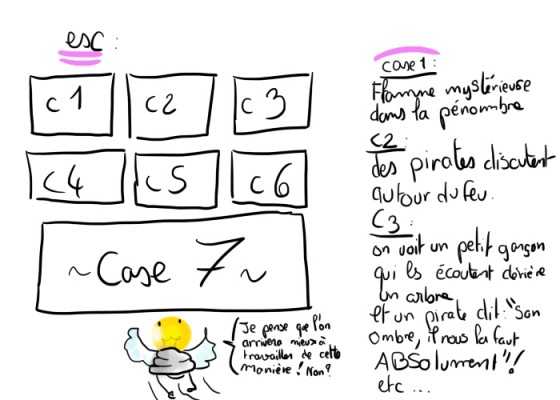 esc :
c1
c2
c3
c4
c5
c6
~Case 7~
Je pense que l'on
arrivera mieux à
travailler de cette
manière ! Non ?
case 1 :
Flamme mystérieuse
dans la pénombre
C2 :
des pirates discutent
autour du feu.
C3 :
on voit un petit garçon
qui les écoutent dérière
un arbre
et un pirate dit : "Son
ombre, il nous la faut
ABSolument"!
etc ...